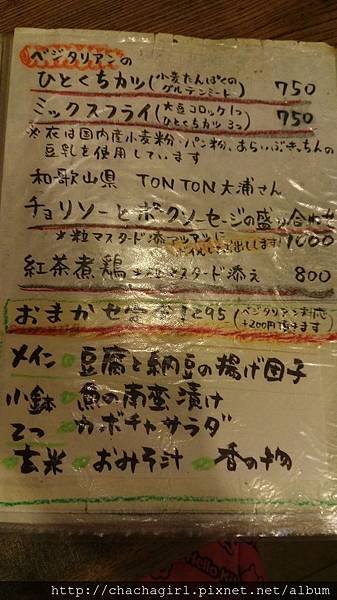 ベジタリアンの
ひとくちカツ(小麦たんぱくのグルテンミート) 750
ミックスフライ(大豆コロッケ1つ ひとくちカツ3つ) 750
※衣は国内産小麦粉・パン粉、あらいぶきっちんの
豆乳を使用しています
和歌山県 TONTON大浦さん
チョリソーとポークソーセージの盛り合わせ
*粒マスタード添 アツアツに ボイルしてお出しします! 1000
紅茶煮鶏 粒マスタード添え 800
おまかせ定食 1295 (ベジタリアン対応 +200円頂きます)
メイン 豆腐と納豆の揚げ団子
小鉢 魚の南蛮漬け
2つ カボチャサラダ
玄米 おみそ汁 香の物
Hello Ki
http://chachagirl.pixnet.net/album